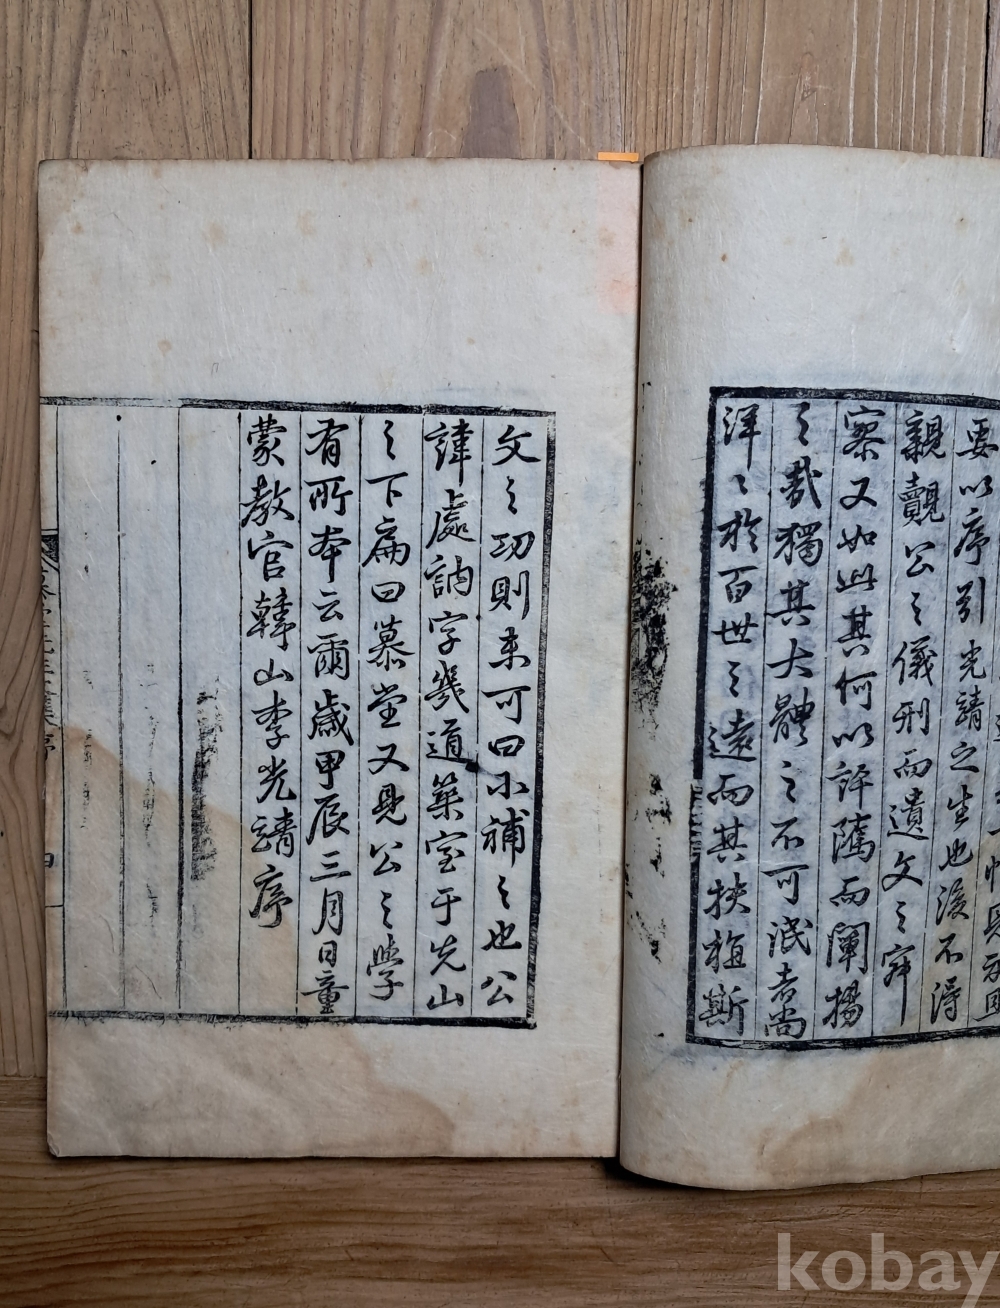 要以序引光靖之生也後不得
親覿公之儀刑而遺文之
察又如此其何以詳隲而闡揚
之哉獨其大體之不可泯者尚
洋〻於百世之遠而其扶植斯
文之功則未可曰小補之也公
諱處訥字幾道築室于先山
之下扁曰慕堂又見公之學
有所本云爾歲甲辰三月日童
蒙教官韓山李光靖序
kobay